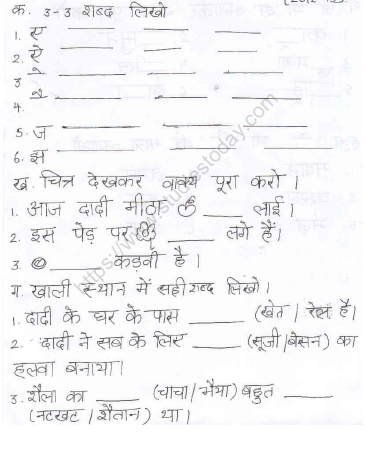 क. 3-3 शब्द लिखो
1. ए ___ ___ ___
2. ऐ ___ ___ ___
3 े ___ ___ ___
4. ै ___ ___ ___
5. ज ___ ___ ___
6. झ ___ ___ ___
ख. चित्र देखकर वाक्य पूरा करो ।
1. आज दादी मीठा ___ लाई ।
2. इस पेड़ पर ___ लगे हैं।
3. ___ कड़वी है ।
ग. खाली स्थान में सही शब्द लिखो ।
1. दादी के घर के पास ___ (खेत / रेल है।
2. दादी ने सब के लिए ___ (सूजी/बेसन) का
हलवा बनाया।
3. शैला का ___ (चाचा/भैया) बहुत ___
(नटखट / शैतान) था ।
https://www.studiestoday.com